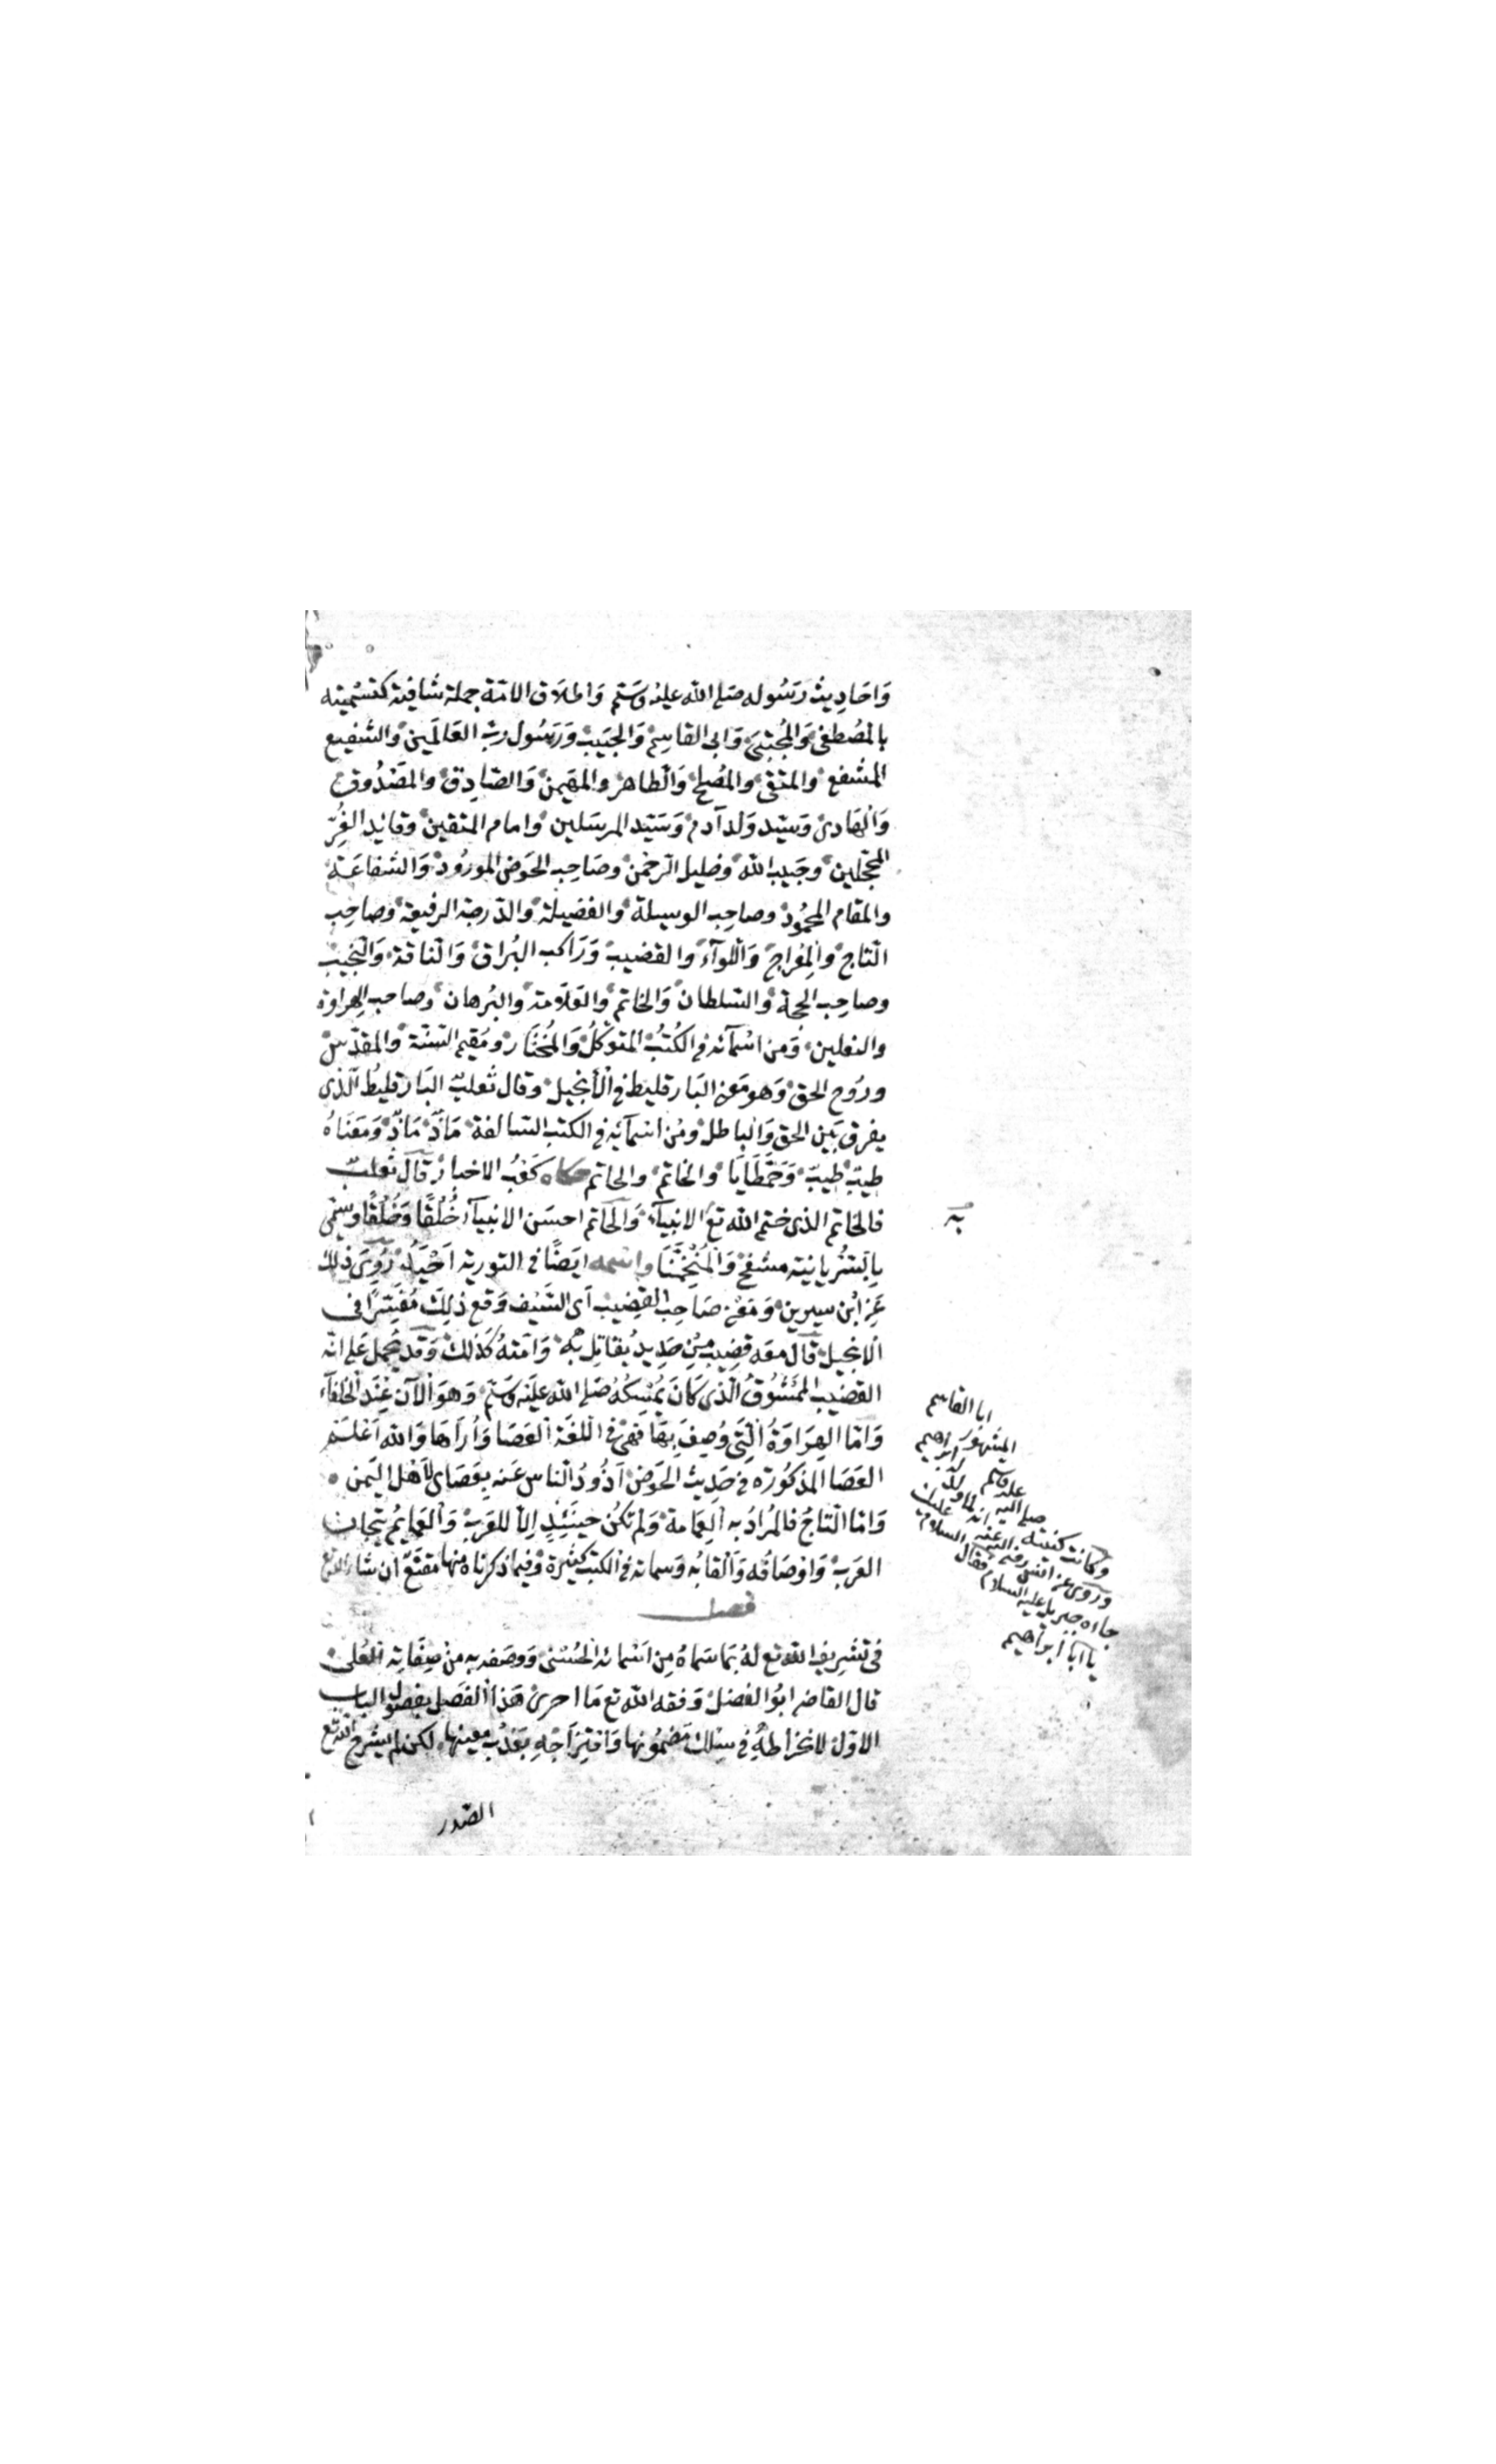 وَاحَادِيث رَسُوله صَلى الله عليهُ وسَلم وَاطلاق الامّة جملة شافية كتسْميته
بالمصْطفى وَالمُجْتبىَ وَابى القاسِم وَالحبَيب وَرَسُول ربّ العَالَمين والشفيع
المشفع والمتقى والمصْلح وَالطاهر والمهَيمن وَالصّادِق والمصْدُوق
وَالهَادى وَسيّد وَلد آدم وَسَيّد المرسَلين وامام المتقين وقايد الغُرِّ
المحجّلين وحَبيب الله وخليل الرّحمن وصَاحِب الحَوض المورُود وَالشفاعَة
والمقام المحمُود وصاحِب الوسيلة والفضيلة والدّرجة الرفيعة وصاحِب
التاج والمِعْراج وَاللوآء والقضيب وَرَاكب البُراق وَالناقة وَالنجيب
وصاحِب الحجة والسّلطان وَالخاتم والعَلاَمة والبُرهان وصاحب الهِراوة
والنعلين وَمن اسْمآئه فى الكُتُب المتوَكلُ وَالمُخْتَار ومُقيم السّنة والمقدّس
ورُوح الحق وَهو مَعنى البَارقليط فى الأنجيل وقال ثعلبٌ البَارقليطُ الّذى
يفرق بَين الحق وَالباطل ومِن اسْمآئه فى الكتب السّالفة مَاذ مَاذ وَمَعنَاهُ
طيّبٌ طيّبٌ وَحَمْطَايَا والخاتم والحاتم حكاه كَعْبُ الاحبار قال ثعلبٌ
فالخاتم الذى ختم الله تع الانبيآء وَالحَاتم احسَن الانبيآء خُلُقًا وَخَلقًا وسَمّى
به
بالسُّرْيانية مشفح وَالمُنْحَمَنَّا واسمه ايضًا فى التورية اُحْيَدُ رُوِىَ ذلك
عَن ابْن سيرين وَمَعْنى صَاحِب القضِيب اَى السَّيْف وَقع ذلِكَ مُفَسّرًا فى
الانجيل قال معَه قضِيبٌ مِن حَدِيد يُقاتِل به وَامّتهُ كَذلكَ وقد يُحْمل عَلى انّه
القضِيب المَمْشُوقُ الّذى كَانَ يُمْسِكُهُ صَلى الله عليَه وَسَلم وَهوَ الآن عِنَد الخلفآء
وَامّا الهِرَاوَةُ الّتِى وُصِفَ بهَا فهىَ فى اللغَة العَصَا وَأُرَاهَا وَالله اَعْلَم
العَصَا المذكورَة فى حَديث الحَوض اذُودُ النّاس عَنه بِعَصَاى لِاَهْل اليَمن
وَامّا التّاجُ فالمرَادُ به العِمَامة وَلم تكُن حِينَئِذٍ اِلاّ للعَرَب وَالعَمَايمُ تيجان
العَرَب وَاوْصَافُه وَاَلقابُه وَسماته فى الكتب كثِيرَة وَفيماذكرناه منها مقنَعٌ ان شاء الله تع
فصل
فى تشريف الله تع لهُ بمَا سَماهُ مِن اَسْمائه الحُسْنى وَوصَفه به من صِفَاته العُلى
قال القاضى ابُوالفضل وَفقه الله تع مَا احرى هَذا الفصَل بفصُول الباب
الاوّل لانخراطهُ فى سِلك مَضمُونها وَامْتِزَاجِه بِعَذب معينها لكن لم يشرح الله تع
الصّدر
وكانت كنيته صلى الله عليه وسلم المشهور ابا القاسم
وروى عن انس رضى الله عنه انه لما ولد له ابراهيم
جاءه جبريل عليه السلام فقال السلام عليك
يا ابا ابراهيم